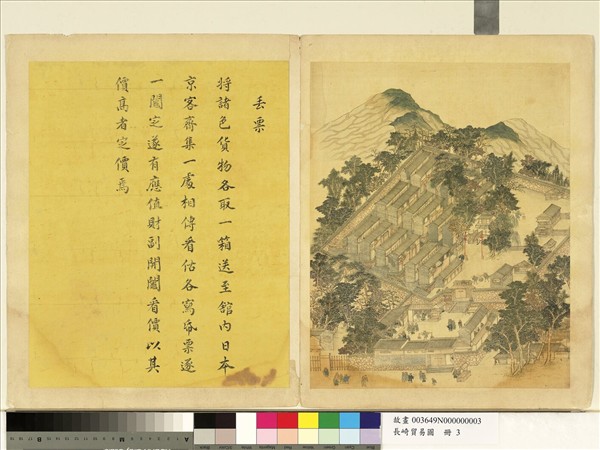 丟票
將諸色貨物各取一箱送至館內日本
京客齊集一處相傳看估各寫
票逐
一鬮定遂有應值財副開鬮看價以其
價高者定價焉
故畫 003649N000000003
長崎貿易圖 冊 3